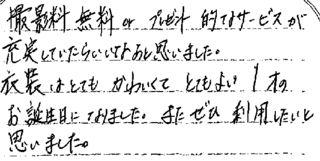 撮影料 無料 or プレゼント 的なサービスが
充実していたらいいなあと思いました。
衣装はとても かわいくて とてもよい 1才の
お誕生日になりました。またぜひ 利用したいと
思いました。